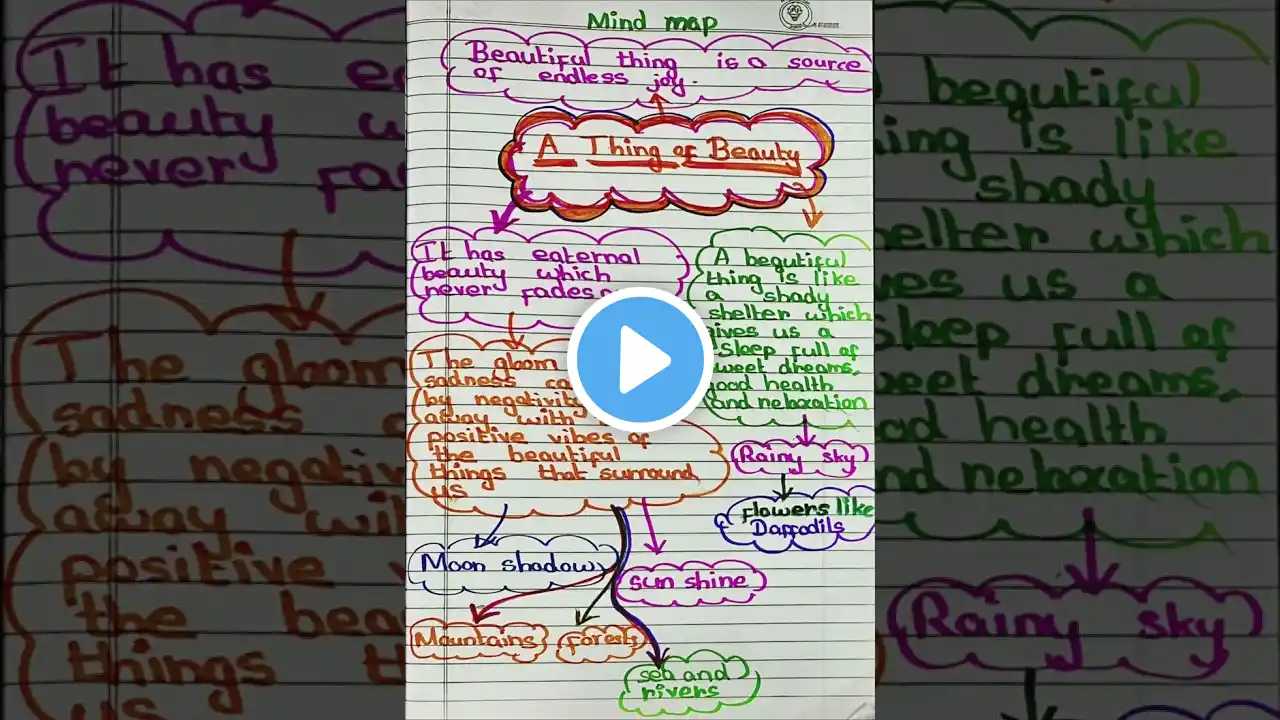 Mind map
Beautiful thing is a source
of endless joy.
A Thing of Beauty
It has eaternal
beauty which
never fades
A begutiful
thing is like
a shady
shelter which
gives us a
sleep full of
sweet dreams,
good health
and relaxation
The gloom
sadness
by negativity
away with
positive vibes of
the beautiful
things that surround
us
Rainy sky
flowers like
Daffodils
Moon shadow
sun shine
Mountains
forests
sea and
rivers